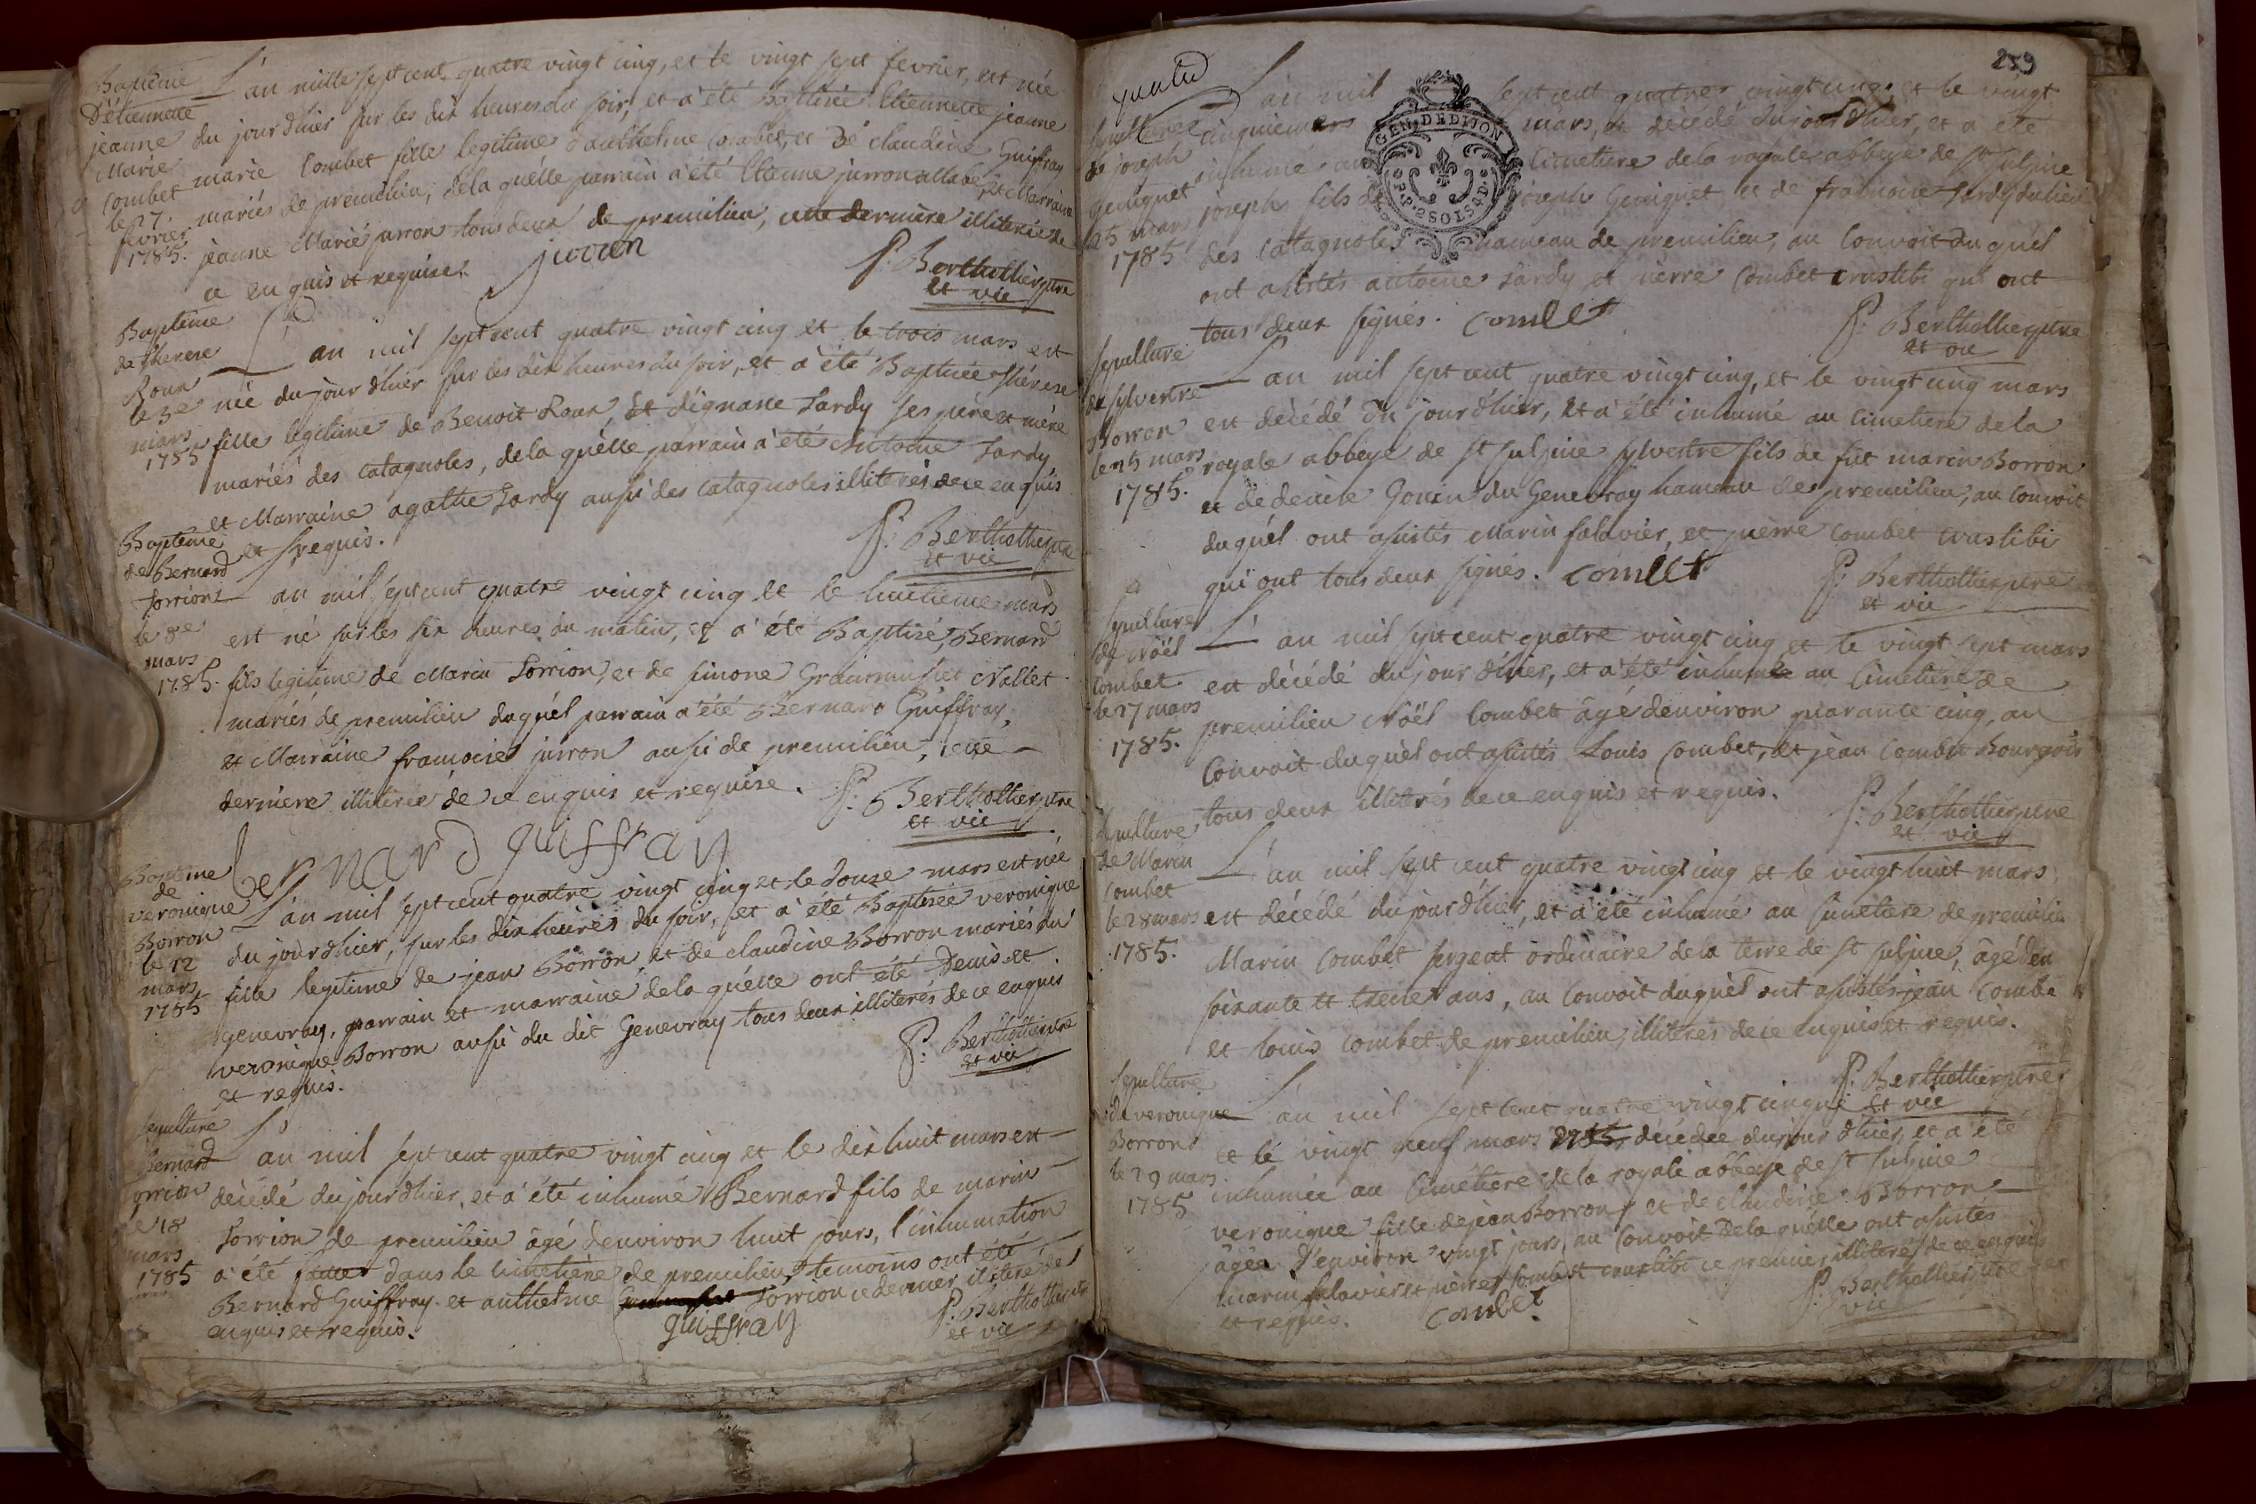 Baptême
D'étiennette
jeanne
Marie
Combet
le 27
fevrier
1785.
L'an mille sept cent quatre vingt cinq, et le vingt sept fevrier, est née
du jour d'hier sur les dix heures du soir, et a été Baptisée Etiennette jeanne
marie Combet fille legitime d'anthelme Combet, et de claudine Guiffray
mariés de premilieu, de la quelle parrain a été Etienne jurron et Marraine
jeanne Marie jurron tous deux de premilieu, cette derniere illiterée de
ce enquis et requise.
jurron
P. Berthollier ptre
et vic
Baptême
de therese
Roux
le 3e
mars
1785
L'an mil sept cent quatre vingt cinq et le trois mars est
née du jour d'hier sur les dix heures du soir, et a été Baptisée Thérese
fille legitime de Benoit Roux, et d'ignasse Sardy ses père et mère
mariés des catagnoles, de la quelle parrain a été Antoine Sardy
et Marraine agathe Sardy aussi des catagnoles illiterés de ce enquis
et requis.
P. Berthollier ptre
et vic
Baptême
de Bernard
Sorrion
le 8e
mars
1785.
L'an mil sept cent quatre vingt cinq et le huitieme mars
est né sur les six heures du matin, et a été Baptisé, Bernard
fils legitime de Marin Sorrion, et de simone Nallet
mariés de premilieu duquél parrain a été Bernard Guiffray,
et Marraine francoise jurron aussi de premilieu, cette
derniere illiterée de ce enquis et requise.
P. Berthollier ptre
et vic
bernard guiffray
Baptême
de
veronique
Borron
le 12
mars
1785
L'an mil sept cent quatre vingt cinq et le douze mars est née
du jour d'hier, sur les dix heures du soir, et a été Baptisée veronique
fille legitime de jean Borron, et de claudine Borron mariés du
genevray, parrain et marraine de la quélle ont été Denis et
veronique Borron aussi du dit Genevray tous deux illiterés de ce enquis
et requis.
P. Berthollier ptre
et vic
sepulture
Bernard
Sorrion
le 18
mars
1785
L'an mil sept cent quatre vingt cinq et le dix huit mars est
décédé du jour d'hier, et a été inhumé Bernard fils de marin
Sorrion de premilieu âgé denviron huit jours, l'inhumation
a été faitte dans le cimetière de premilieu, temoins ont été
Bernard Guiffray et anthelme Sorrion ce dernier illiteré de
enquis et requis.
guiffray
P. Berthollier ptre
et vic
239
GEN. DE DIJON
Sepulture
de joseph
Genignet
25 mars
1785
L'an mil sept cent quatre vingt cinq et le vingt
cinquieme mars, est décédé du jour d'hier, et a été
inhumé au Cimetiere de la royale abbaye de st sulpice
joseph fils de joseph Genignet et de francoise Sardy du lieu
des Cattagnoles hameau de premilieu, au Convoit du quél
ont assistés antoine Sardy et pierre Combet crustibi qui ont
tous deux signés. Combet
P. Berthollier ptre
et vic
Sepulture
de sylvestre
Borron
le 25 mars
1785.
L'an mil sept cent quatre vingt cinq, et le vingt cinq mars
est décédé du jour d'hier, et a été inhumé au cimetiere de la
royale abbaye de st sulpice sylvestre fils de fût marin Borron
et de denise Gouin du Genevray hameau de premilieu, au convoit
duquél ont assistés Marin falavier, et pierre Combet crustibi
qui ont tous deux signés. Combet
P. Berthollier ptre
et vic
Sepulture
de Noël
Combet
le 27 mars
1785.
L'an mil sept cent quatre vingt cinq et le vingt sept mars
est décédé du jour d'hier, et a été inhumé au Cimetiere de
premilieu Noël Combet âgé denviron quarante cinq, au
Convoit duquél ont assistés Louis Combet, et jean Combet Bourgois
tous deux illiterés de ce enquis et requis.
P. Berthollier ptre
et vic
Sepulture
de Marin
Combet
le 28 mars
1785.
L'an mil sept cent quatre vingt cinq et le vingt huit mars
est décédé du jour d'hier, et a été inhumé au Cimetiere de premilieu
Marin Combet sergent ordinaire de la terre de st sulpice, âgé d'en
soixante et treize ans, au Convoit duquél ont assistés jean Combe
et louis Combet de premilieu illiterés de ce enquis et requis.
P. Berthollier ptre
et vic
Sepulture
de veronique
Borron
le 29 mars
1785
L'an mil sept cent quatre vingt cinque
et le vingt neuf mars décédée du jour d'hier, et a été
inhumée au Cimetiere de la royale abbaye de st sulpice
veronique fille de jean Borron et de claudine Borron
âgée d'environ vingt jours, au Convoit de la quélle ont assistés
marin falavier et pierre Combet crustibi ce premier illiteré de ce enquis
et requis. Combet
P. Berthollier ptre et
vic